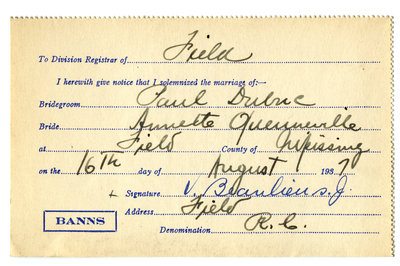 To Division Registrar of Field
I herewith give notice that I solemnized the marriage of:—
Bridegroom Paul Dubuc
Bride Annette Quenneville
at Field County of Nipissing
on the 16th day of August 1937
+ Signature V. Beaulieu s.j.
BANNS
Address Field
Denomination R.C.